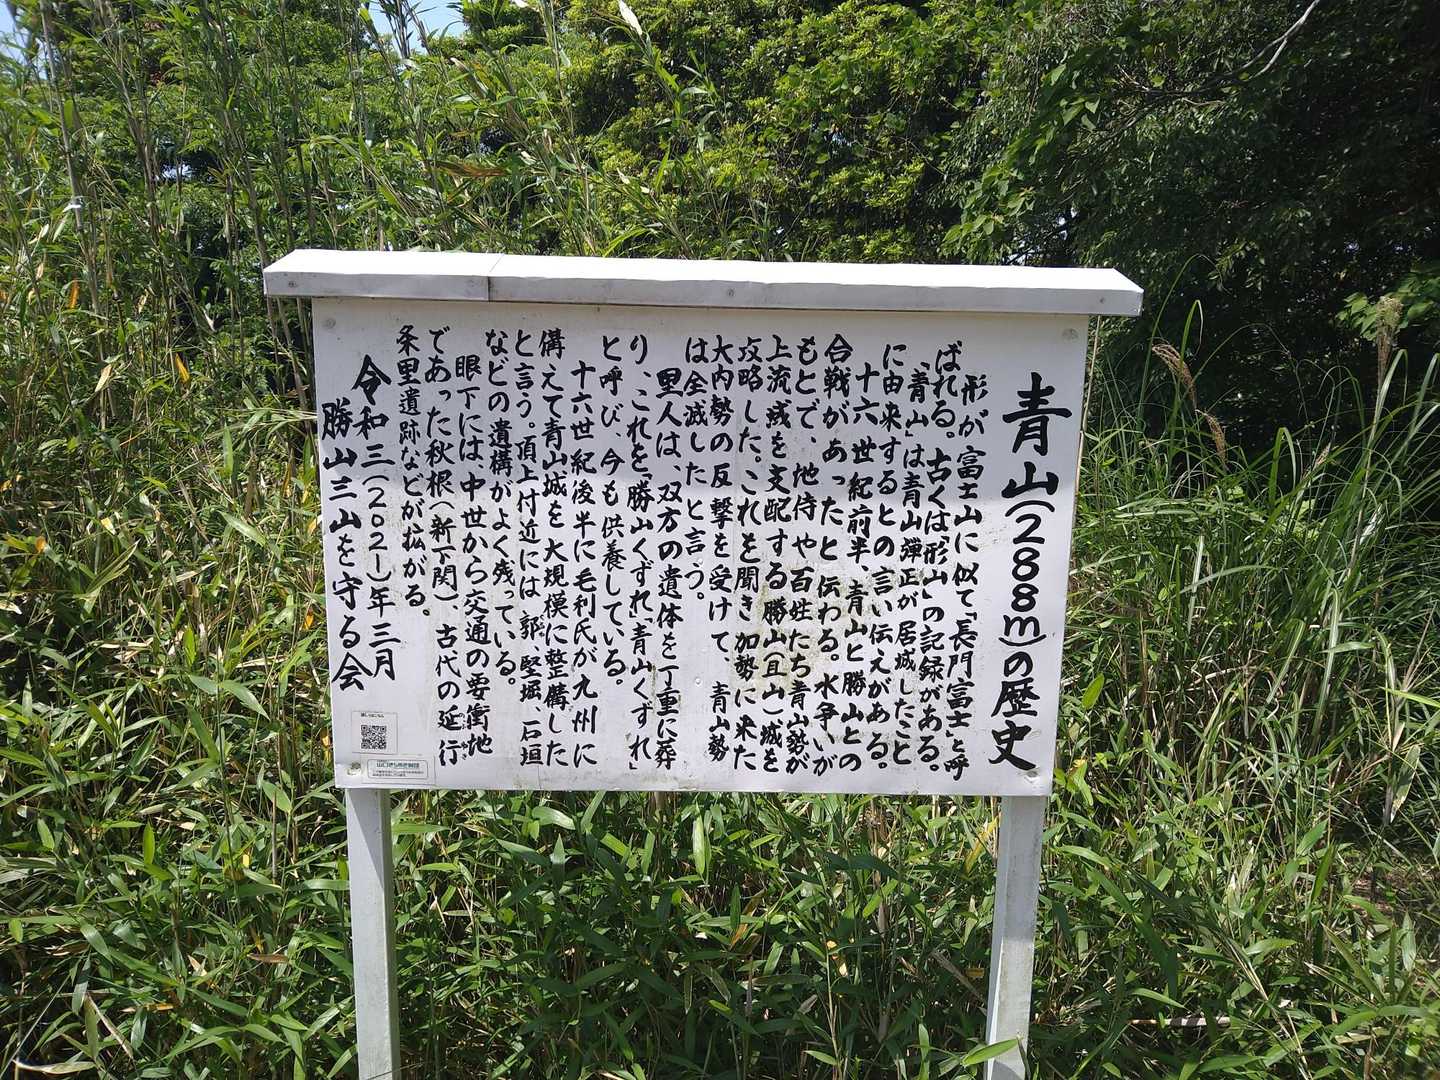 青山(288m)の歴史
形が富士山に似て「長門富士」と呼
ばれる。古くは「形山」の記録がある。
「青山」は青山弾正が居城したこと
に由来するとの言い伝えがある。
十六世紀前半、青山と勝山との
合戦があったと伝わる。水争いが
もとで、地侍や百姓たち青山勢が
上流域を支配する勝山(且山)城を
攻略した。これを聞き加勢に来た
大内勢の反撃を受けて、青山勢
は全滅したと言う。
里人は、双方の遺体を丁重に葬
り、これを「勝山くずれ「青山くずれ」
と呼び、今も供養している。
十六世紀後半に毛利氏が九州に
備えて青山城を大規模に整備した
と言う。頂上付近には、郭、堅堀、石垣
などの遺構がよく残っている。
眼下には、中世から交通の要衝地
であった秋根(新下関)、古代の延行
条里遺跡などが拡がる。
令和三(2021)年三月
勝山三山を守る会